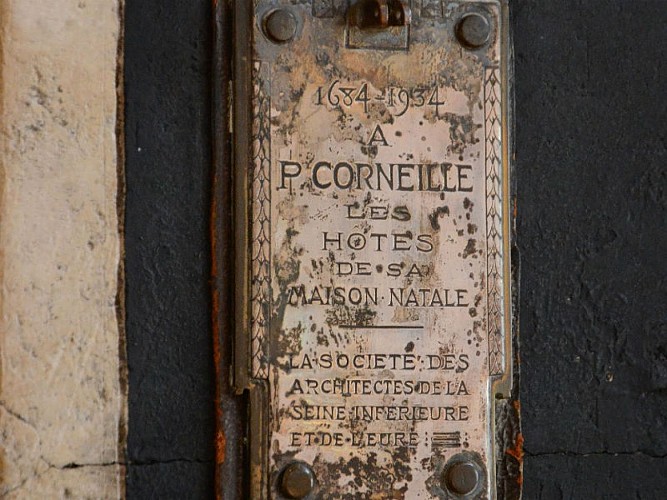 1684-1934
A
P. CORNEILLE
LES
HOTES
DE SA
MAISON NATALE
LA SOCIETE DES
ARCHITECTES DE LA
SEINE INFERIEURE
ET DE L'EURE